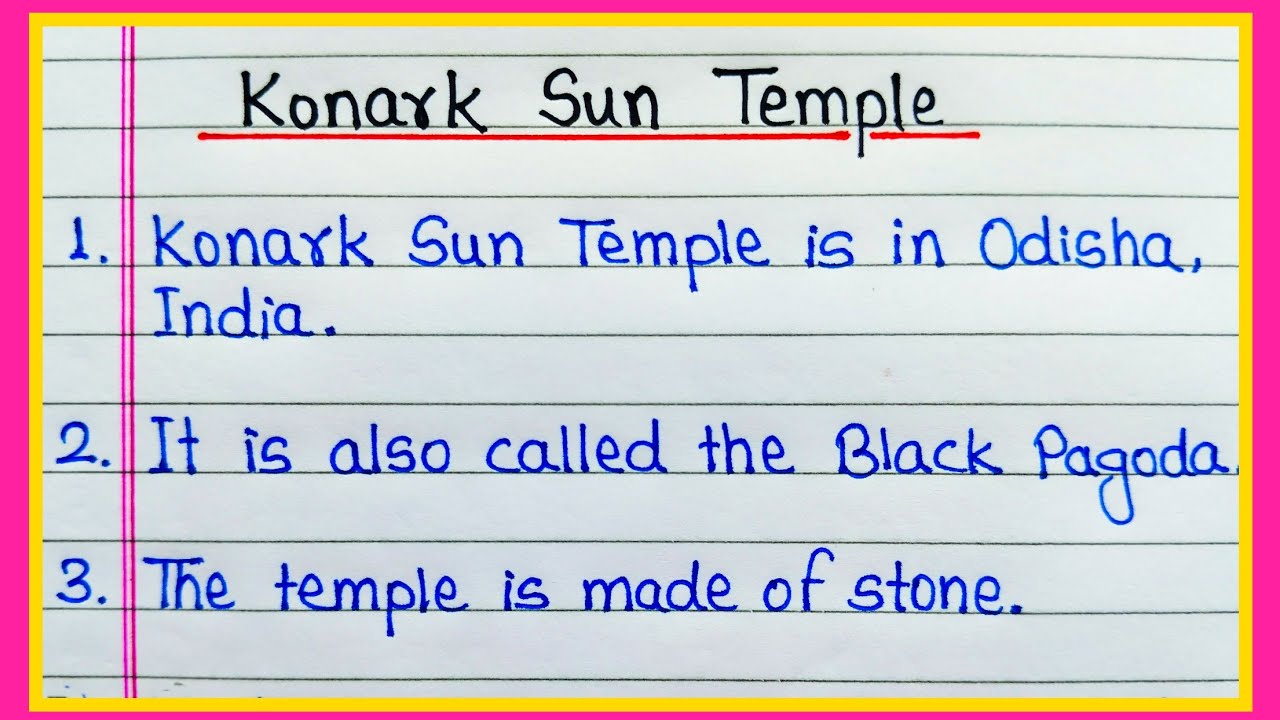 Konark Sun Temple
1. Konark Sun Temple is in Odisha,
India.
2. It is also called the Black Pagoda.
3. The temple is made of stone.